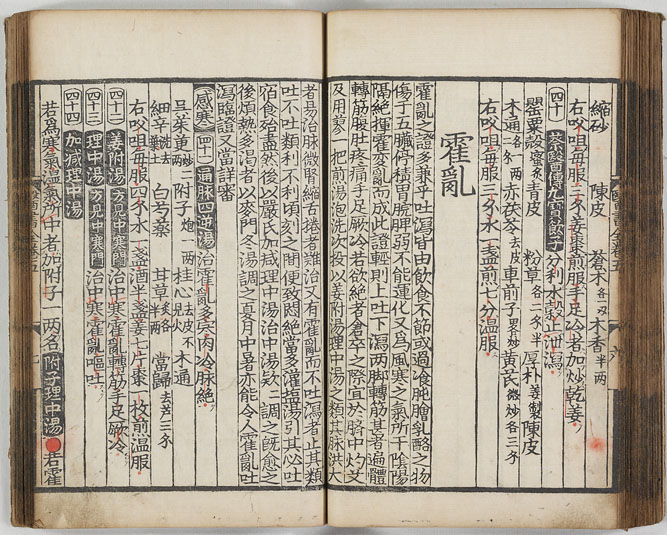 縮砂 陳皮 蒼木各一分 木香半兩
右㕮咀每服三分姜棗煎服手足冷者加炒乾姜
四十 飲子 分利水穀止泄瀉
罌粟殼蜜炙 青皮 粉草各二分半 厚朴姜製 陳皮
木通各一兩 赤茯苓去皮 車前子畧炒 黃芪微炒各三分
右㕮咀每服三分水一盞煎七分溫服
霍亂
霍亂之證多兼乎吐瀉皆由飲食不節或過飡飩膾乳酪之物
傷于五臟停積胃腕脾弱不能運化又爲風寒之氣所干陰陽
隔絶揮霍變亂而成此證輕則上吐下瀉兩脚轉筋甚者遍體
轉筋腹肚疼痛手足厥冷若欲絶者倉卒之際宜於臍中灼艾
及用蓼一把煎湯泡洗次投以姜附湯理中湯之類其脉洪大
者易治脉微囊縮舌捲者難治又有霍亂而不吐瀉者止其類
吐不吐類利不利頃刻之間便致悶絶當多灌塩湯引其必吐
宿食殆盡然後以嚴氏加减理中湯治中湯欵二調之既愈之
後煩熱多渴者以麥門冬湯調之夏月中暑亦能令人霍亂吐
瀉臨證又當詳審
感寒 四十一 通脉四逆湯 治霍亂多寒肉冷脉絶
吳茱萸二兩炒 附子炮一兩 桂心去皮不見火 木通
細辛洗去土 白芍藥 甘草炙各半兩 當歸去芦三分
右㕮咀每服四分水一盞酒半盞姜七片棗一枚煎溫服
四十二 姜附湯 方見中寒門 治中寒霍亂轉筋手足厥冷
四十三 理中湯 方見中寒門 治中寒霍亂嘔吐
四十四 加减理中湯
若爲寒氣濕氣所中者加附子一兩名附子理中湯 若霍